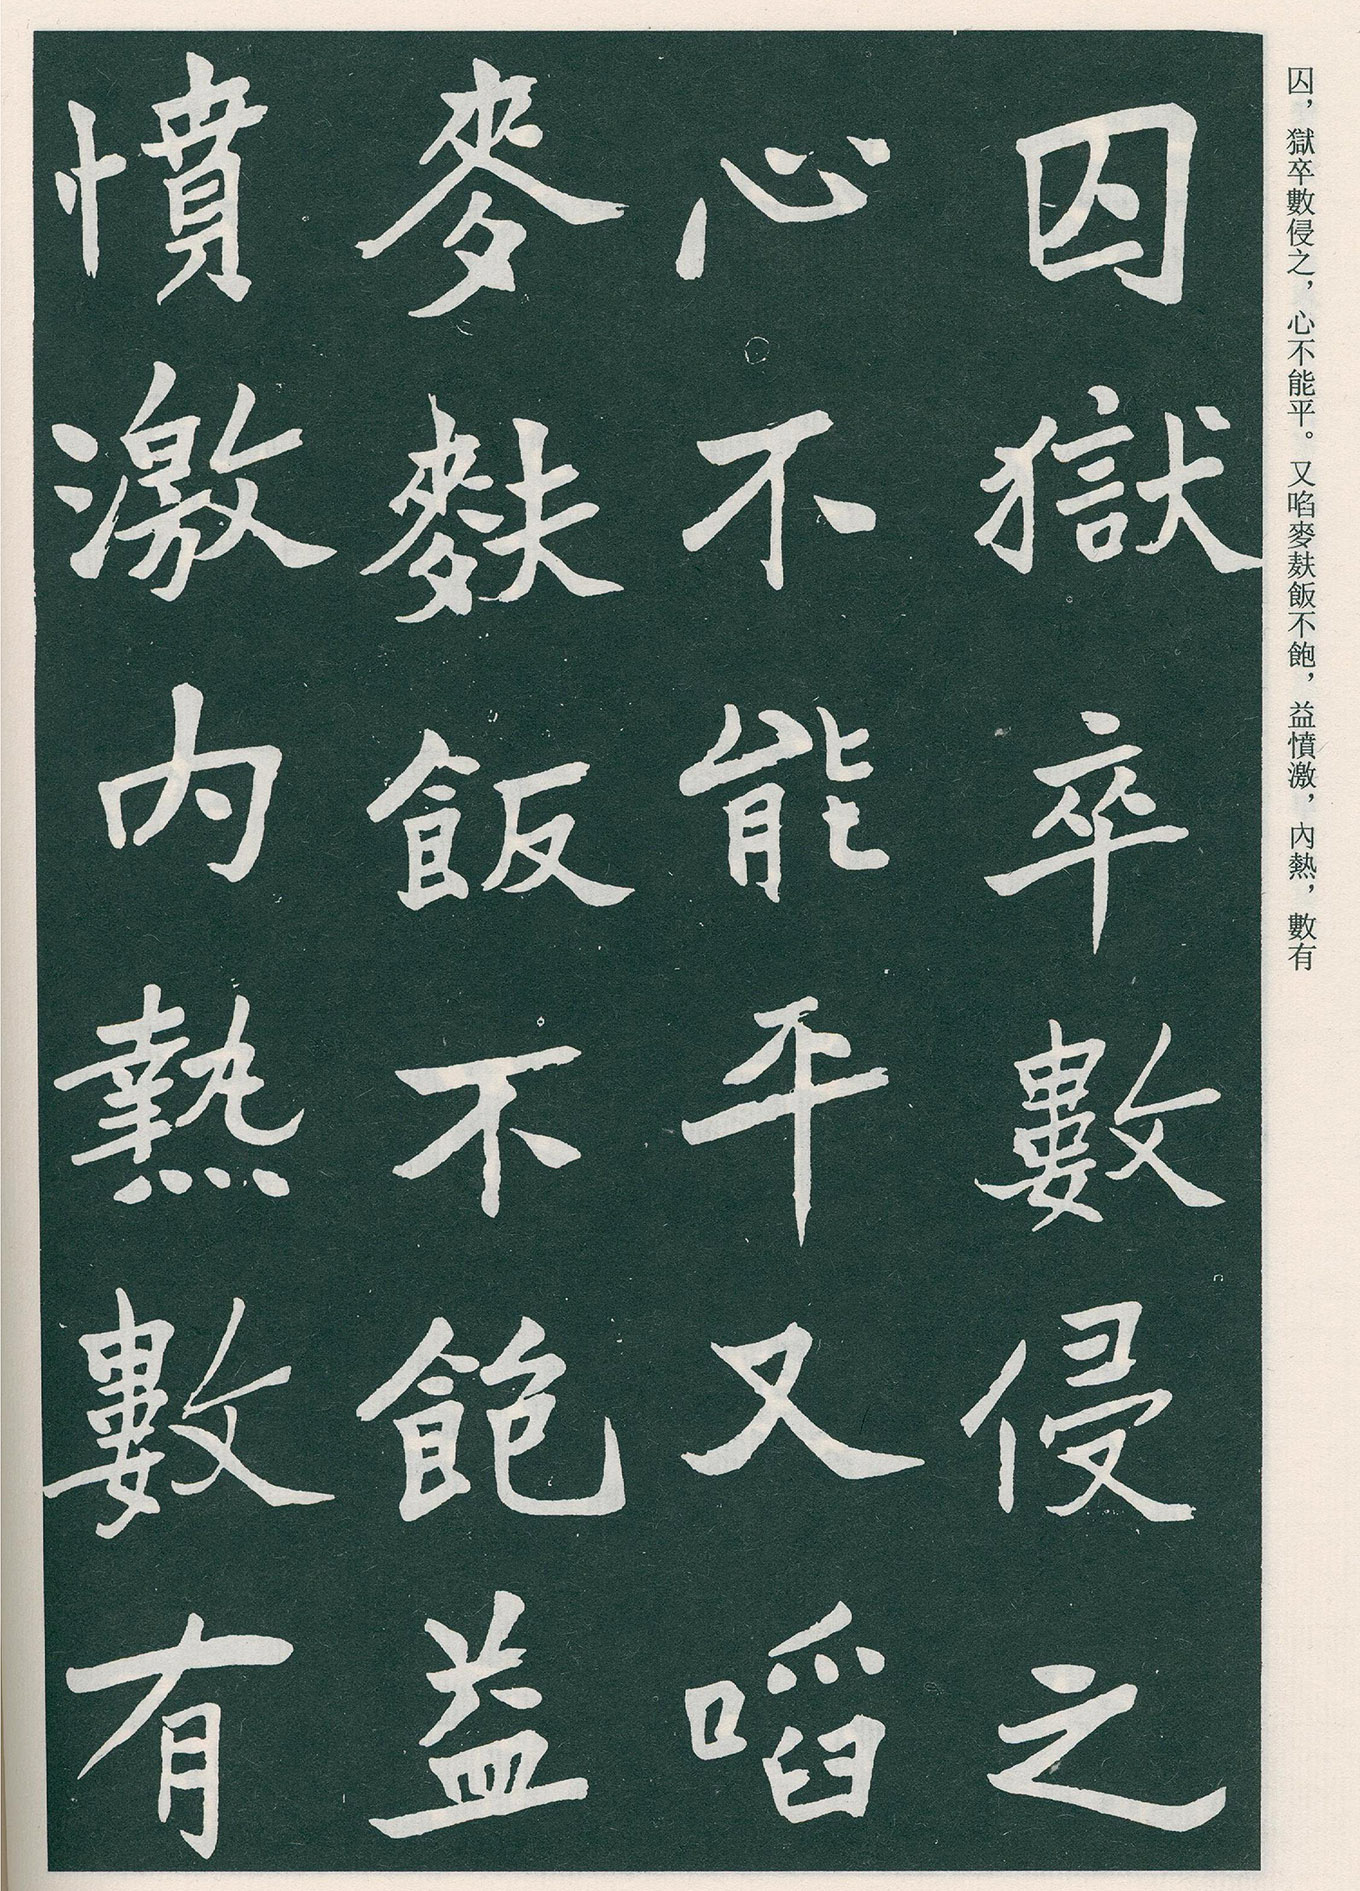 囚，獄卒數侵之，心不能平。又啗麥麩飯不飽，益憤激，內熱，數有
囚獄卒數侵之
心不能平又啗
麥麩飯不飽益
憤激内熱數有